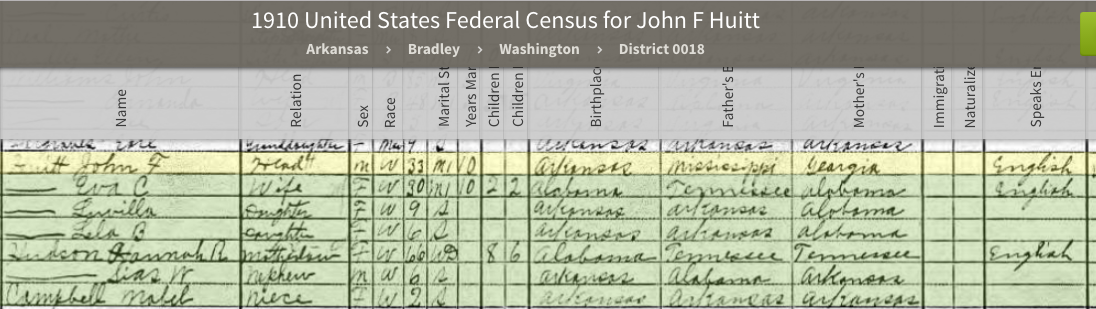 1910 United States Federal Census for John F Huitt
Arkansas > Bradley > Washington > District 0018
Name Relation Sex Race Marital St Years Mar Children Children Birthplac Father's B Mother's Immigrati Naturaliz Speaks En
Granddaughter F 7 S Arkansas Arkansas Arkansas
Huitt John F Head M W 33 M1 10 Arkansas Mississippi Georgia English
—— Eva C Wife F W 30 M1 10 2 2 Alabama Tennessee Alabama English
—— Luvilla Daughter F W 9 S Arkansas Arkansas Alabama
—— Lela B Daughter F W 6 S Arkansas Arkansas Alabama
Hudson Hannah R F W 66 Wd 8 6 Alabama Tennessee Tennessee English
—— W Nephew M W 6 S Arkansas Alabama Arkansas
Campbell Mabel Niece F W 2 S Arkansas Arkansas Arkansas